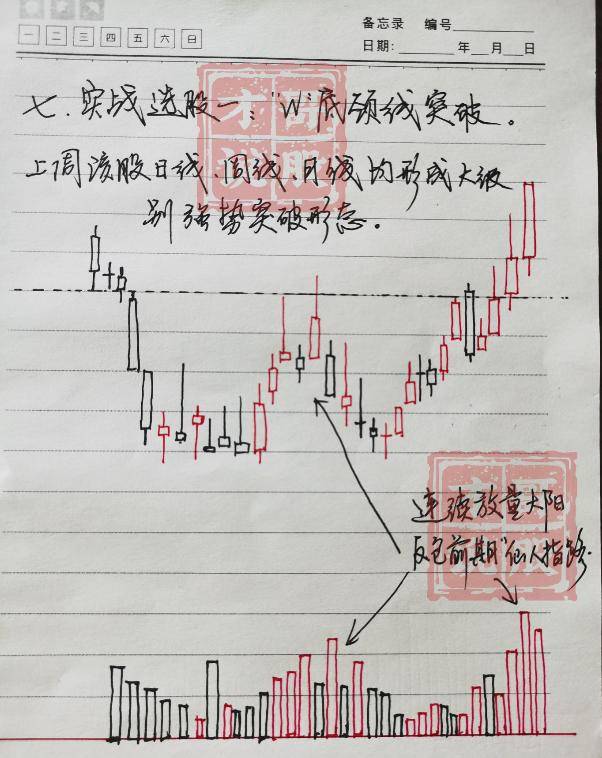 备忘录 编号
一 二 三 四 五 六 日
日期: 年 月 日
七.实战选股一:"W"底颈线突破。
上周该股日线、周线、月线均形成大级
别强势突破形态.
连续放量大阳
反包前期"仙人指路.